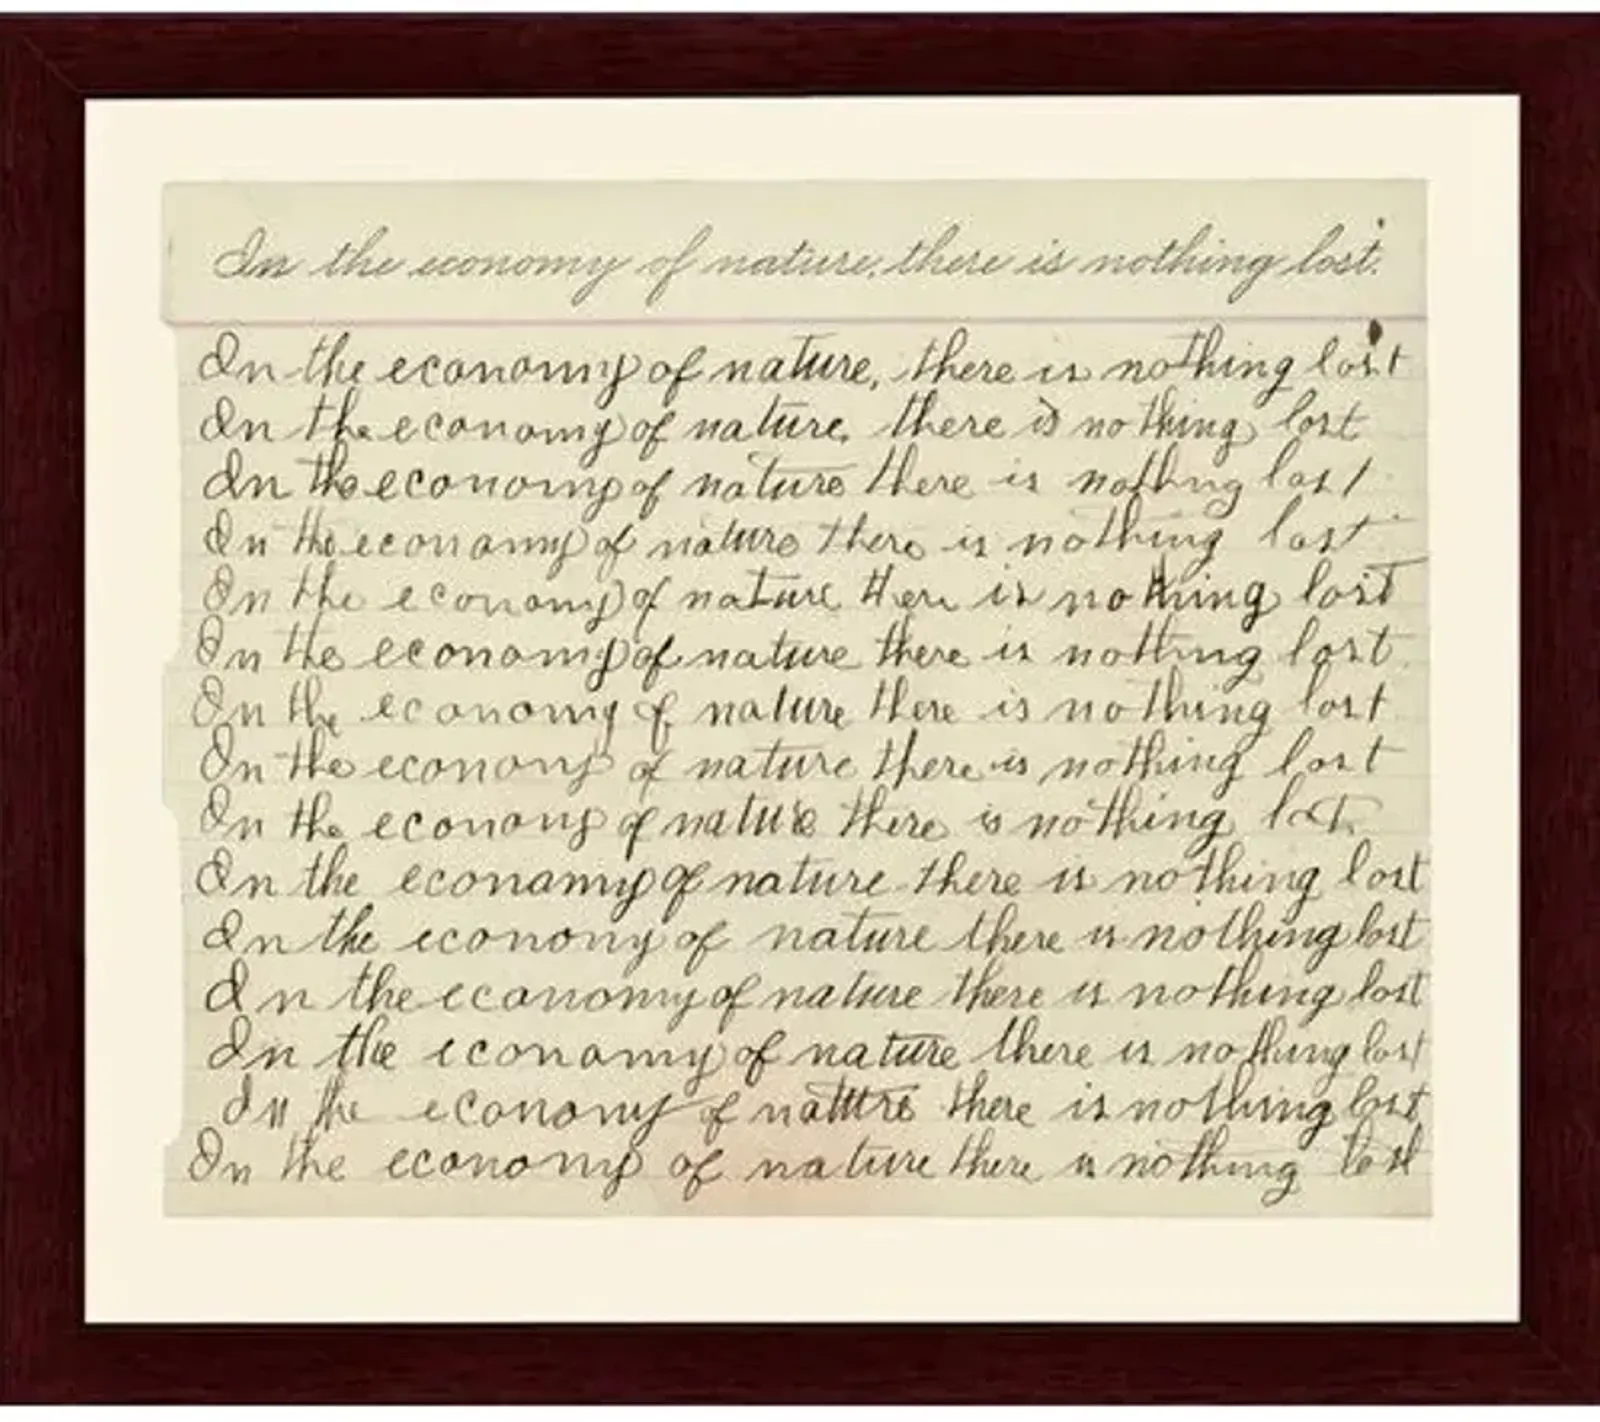 In the economy of nature, there is nothing lost.
In the economy of nature, there is nothing lost
In the economy of nature, there is nothing lost
In the economy of nature there is nothng lost
In the economy of nature there is nothing lost
In the economy of nature there is nothing lost
In the economy of nature there is nothing lost
In the economy of nature there is nothing lost
In the economy of nature there is nothing lost
In the economy of nature there is nothing lost
In the economy of nature there is nothing lost
In the economy of nature there is nothing lost
In the economy of nature there is nothing lost
In the economy of nature there is nothing lost
In the economy of nature there is nothing lost
In the economy of nature there is nothing lost